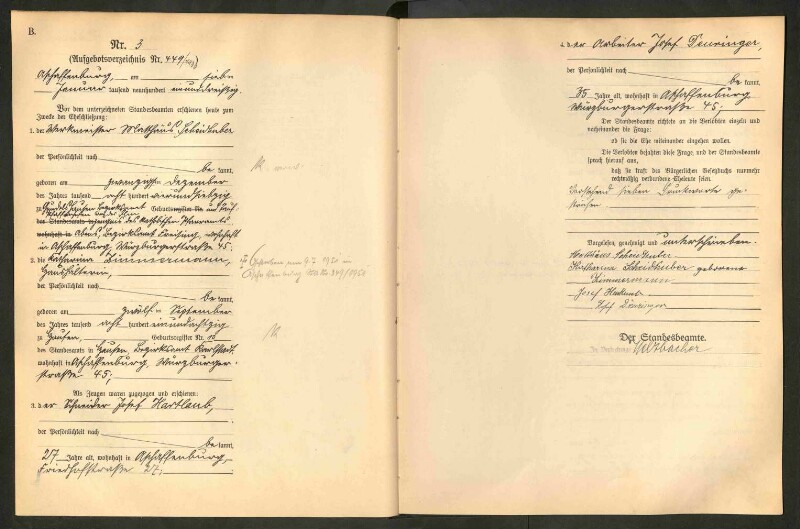 B.
Nr. 3
(Aufgebotsverzeichnis Nr. 449/1930)
Aschaffenburg, am sieben
Januar tausend neunhundert einunddreißig.
Vor dem unterzeichneten Standesbeamten erschienen heute zum
Zwecke der Eheschließung:
1. der Werkmeister Matthäus Scheidhuber
der Persönlichkeit nach
be kannt,
geboren am zwanzigsten Dezember
des Jahres tausend acht hundert neunundsiebzig
zu Bezirksamt Geburtsregister Nr.
des Standesamts des katholischen Pfarramts
wohnhaft in Bezirksamt Freising, wohnhaft
in Aschaffenburg, Würzburgerstraße 45.
2. die Katharina Zimmermann,
Haushälterin,
der Persönlichkeit nach
be kannt,
geboren am zwölften September
des Jahres tausend acht hundert einundachtzig
zu Hausen, Geburtsregister Nr. 10
des Standesamts in Hausen, Bezirksamt Karlstadt,
wohnhaft in Aschaffenburg, Würzburger-
straße 45;
Als Zeugen waren zugezogen und erschienen:
3. der Schneider Josef Hartlaub,
der Persönlichkeit nach
be kannt,
27 Jahre alt, wohnhaft in Aschaffenburg,
Friedhofstraße 27;
Gestorben am 9.7.1950 in
Aschaffenburg
4. der Arbeiter Josef Deuringer,
der Persönlichkeit nach
be kannt,
35 Jahre alt, wohnhaft in Aschaffenburg
Würzburgerstraße 45;
Der Standesbeamte richtete an die Verlobten einzeln und
nacheinander die Frage:
ob sie die Ehe miteinander eingehen wollen.
Die Verlobten bejahten diese Frage, und der Standesbeamte
sprach hierauf aus,
daß sie kraft des Bürgerlichen Gesetzbuchs nunmehr
rechtmäßig verbundene Eheleute seien.
Vorstehend sieben Druckworte ge-
strichen
Vorgelesen, genehmigt und unterschrieben.
Matthäus Scheidhuber
Katharina Scheidhuber geborene
Zimmermann
Josef Hartlaub
Josef Deuringer
Der Standesbeamte.
In Vertretung: